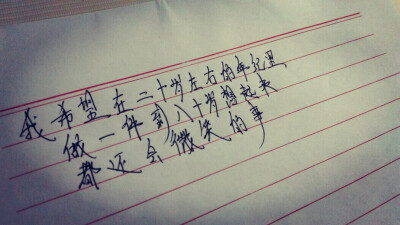 我希望在二十岁左右的年纪里
做一件到八十岁想起来
都还会微笑的事